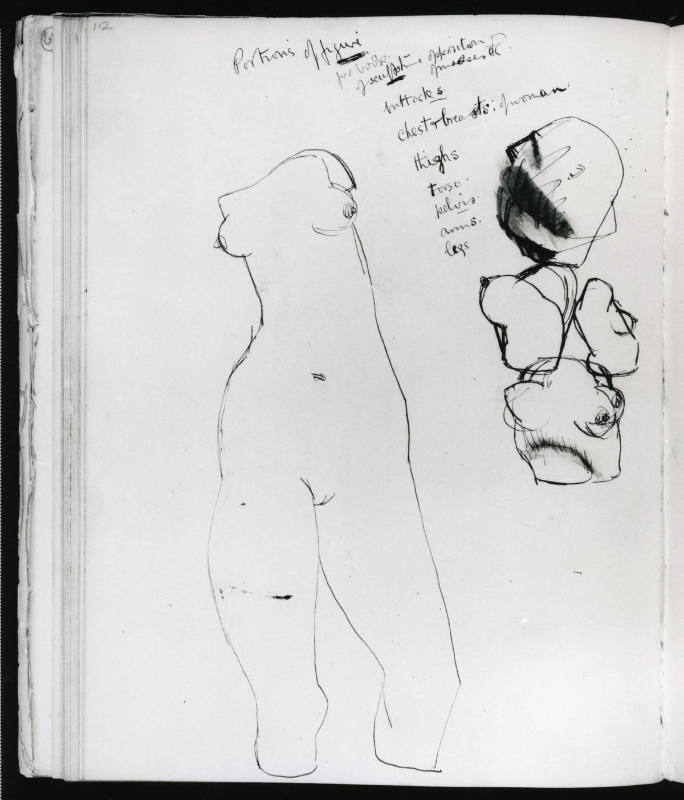 112
Portions of figure
for book
of sculpture opposition
of masses &c
buttocks.
chest & breasts; of woman.
thighs
torso.
pelvis.
arms.
legs